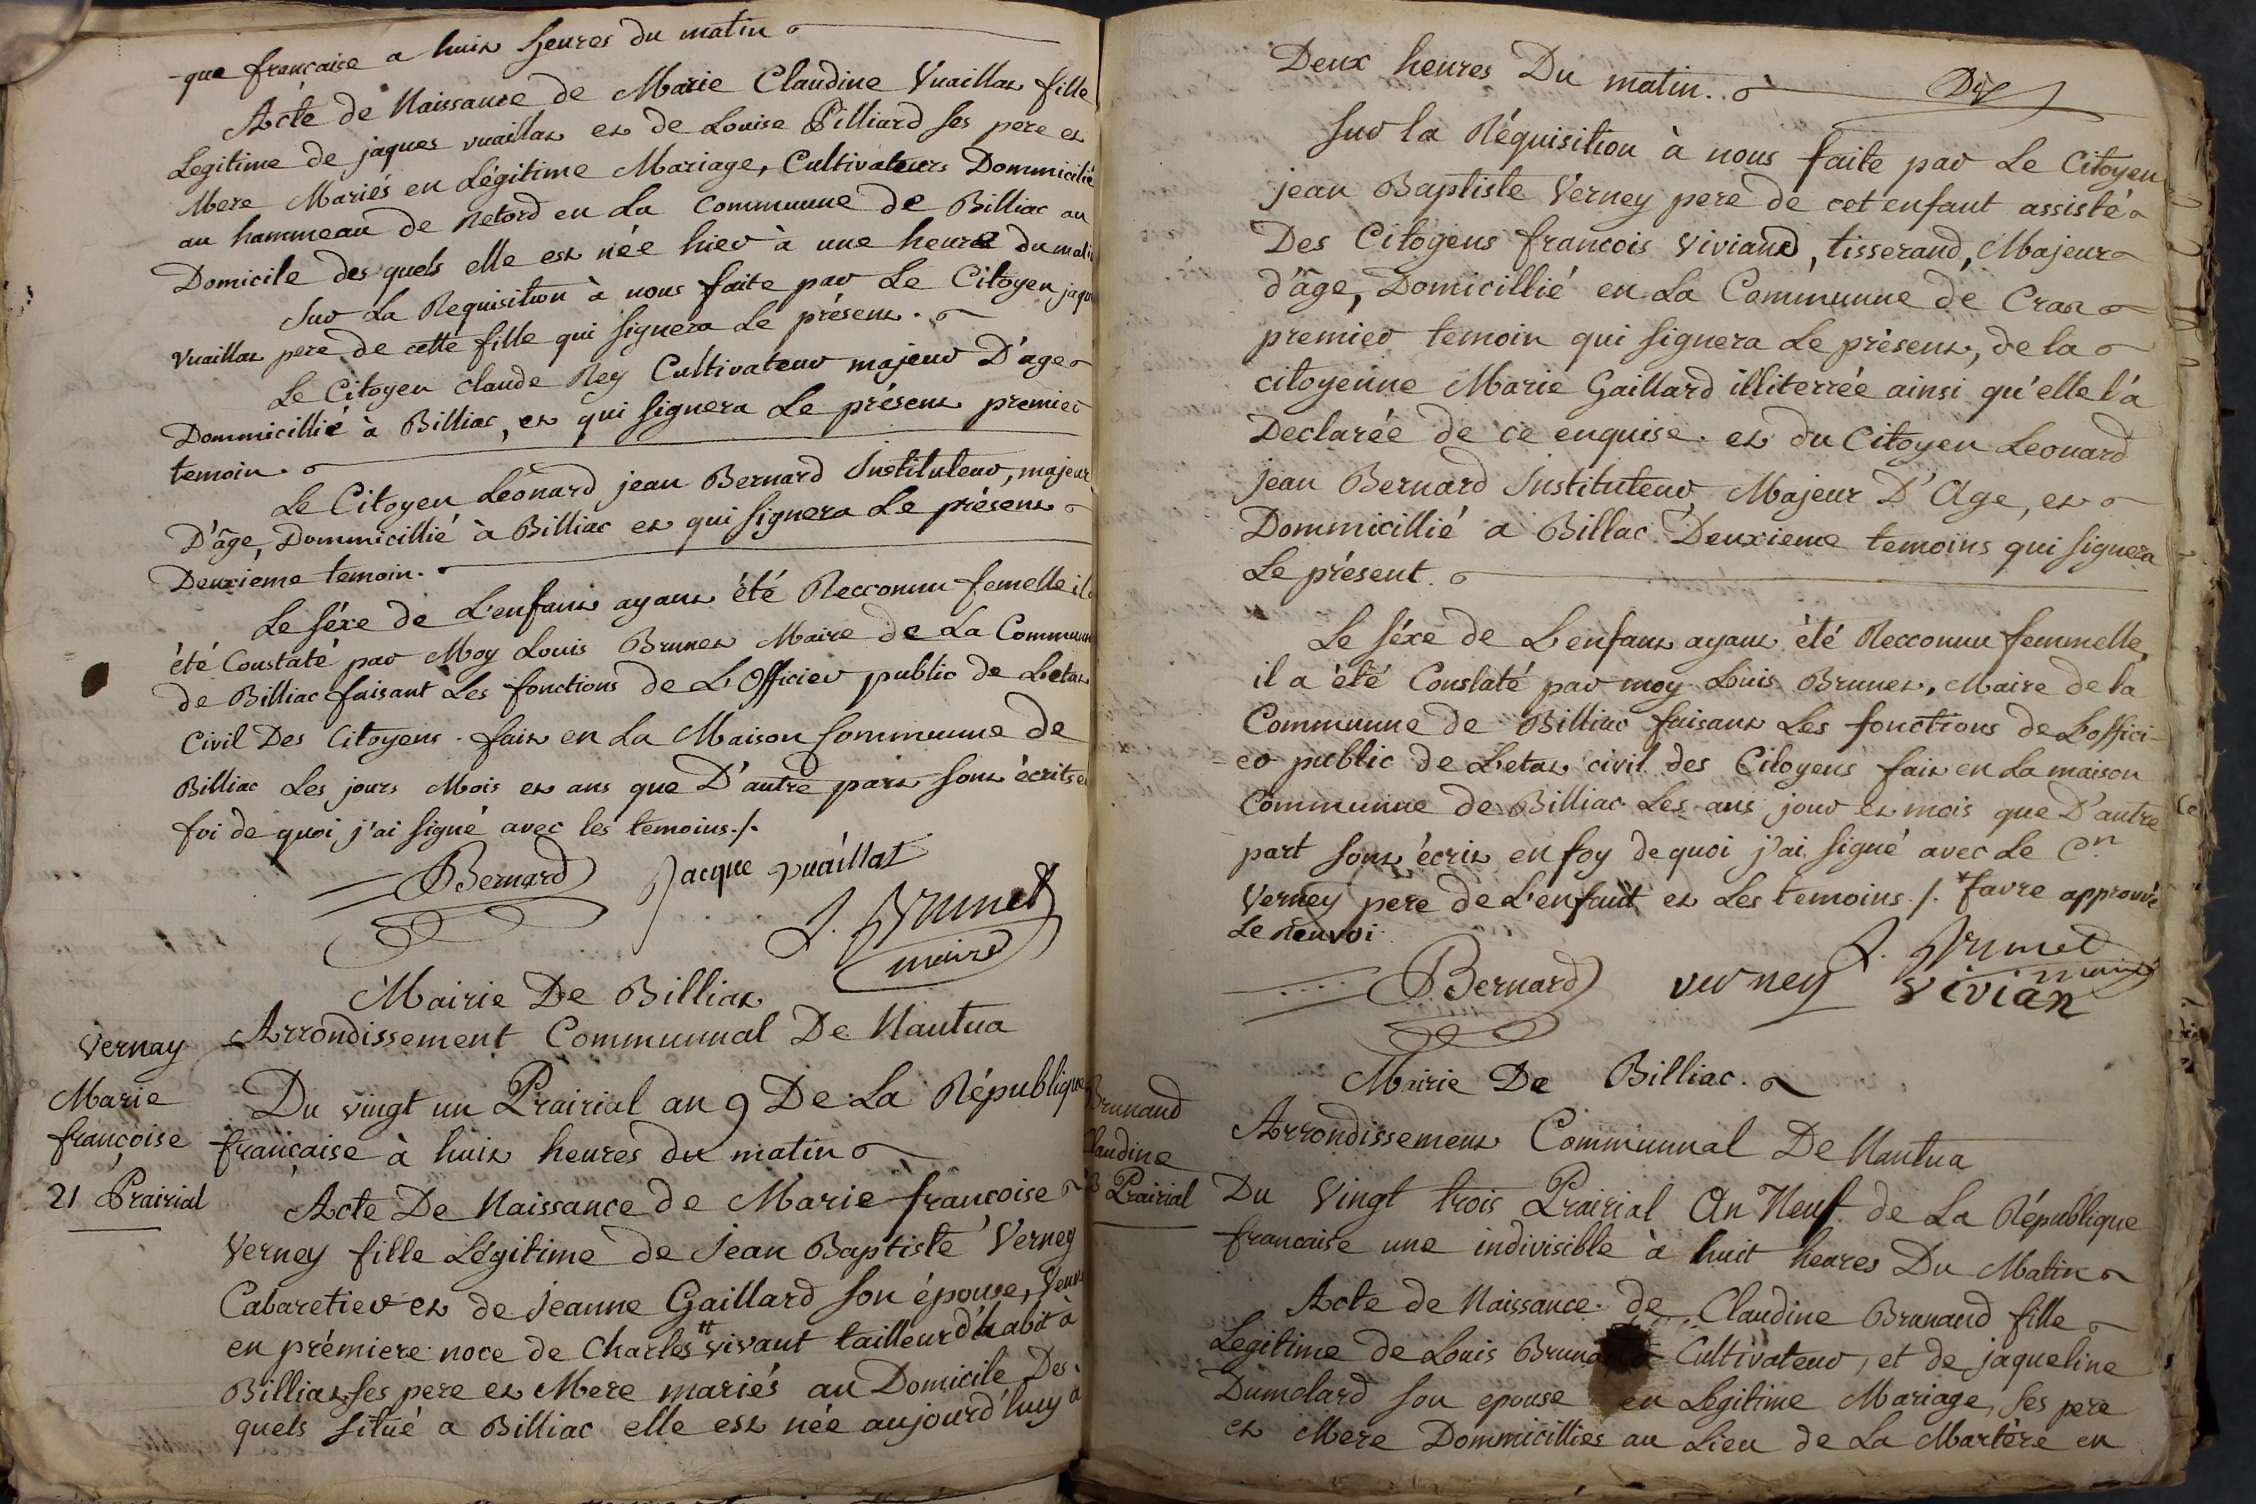 -que francaise a huit heures du matin
Acte de Naissance de Marie Claudine Vuaillat fille
Legitime de jaques vuaillat et de Louise Pilliard ses pere et
Mere Mariés en Légitime Mariage, Cultivateurs Dommicilié
au hammeau de Retord en La Communne de Billiat au
Domicile des quels elle est née hier à une heure du matin
Sur La Requisition à nous faite par Le Citoyen jaque
Vuaillat pere de cette fille qui signera Le présent.
Le Citoyen Claude Rey Cultivateur majeur D'age
Dommicillié à Billiac, et qui signera Le présent premier
temoin.
Le Citoyen Léonard jean Bernard Instituteur, majeur
D'âge, Dommicillié à Billiac et qui signera Le présent
Deuxième temoin.
Le séxe de L'enfant ayant été Recconnu femelle il a
été Constaté par Moy Louis Brunet Maire de La Communne
de Billiac faisant Les fonctions de L'Officier public de Letat
Civil Des Citoyens. fait en La Maison Communne de
Billiac Les jours Mois et ans que D'autre part sont écrits en
foi de quoi j'ai signé avec les temoins ./.
Bernard Jacque vuaillat
L. Brunet
maire
Mairie De Billiat
Arrondissement Communnal De Nantua
Vernay
Marie
françoise
21 Prairial
Du vingt un Prairial an 9 De La République
française à huit heures du matin
Acte De Naissance de Marie francoise
Verney fille Légitime de Jean Baptiste Verney
Cabaretier et de Jeanne Gaillard son épouse, Veuve
en prémiere noce de Charles vivant tailleur d'habit à
Billiat, ses pere et Mere mariés au Domicile Des
quels situé a Billiac elle est née aujourd'huy à
Deux heures Du matin.
Dix
Sur la Réquisition à nous faite par Le Citoyen
jean Baptiste Verney pere de cet enfant assisté
Des Citoyens francois Viviand, tisserand, Majeur
d'âge, Domicillié en La Communne de Craz
premier temoin qui signera Le présent, de la
citoyenne Marie Gaillard illiterrée ainsi qu'elle l'a
Declarée de ce enquise. et du Citoyen Leonard
jean Bernard Instituteur Majeur D'Age, et
Dommicillié a Billac Deuxieme temoins qui signera
Le présent.
Le séxe de L'enfant ayant été Recconnu femmelle,
il a été Constaté par moy Louis Brunet, Maire de la
Communne de Billiac faisant Les fonctions de L'offici-
-er public de Letat civil des Citoyens fait en La maison
Communne de Billiac Les ans jour et mois que D'autre
part sont écrit en foy de quoi j'ai signé avec Le Cn
Verney pere de L'enfant et Les temoins ./. *favre approuvé
Le Renvoi
Bernard verney L. Brunet
maire
vivian
Mairie De Billiac.
Arrondissement Communnal De Nantua
Brunand
Claudine
23 Prairial
Du Vingt trois Prairial An Neuf de La République
francaise une indivisible à huit heures Du Matin
Acte de Naissance de Claudine Brunand fille
Legitime de Louis Brunand Cultivateur, et de jaqueline
Dumolard son epouse en Legitime Mariage, ses pere
et Mere Dommicilliés au Lieu de La Martère en